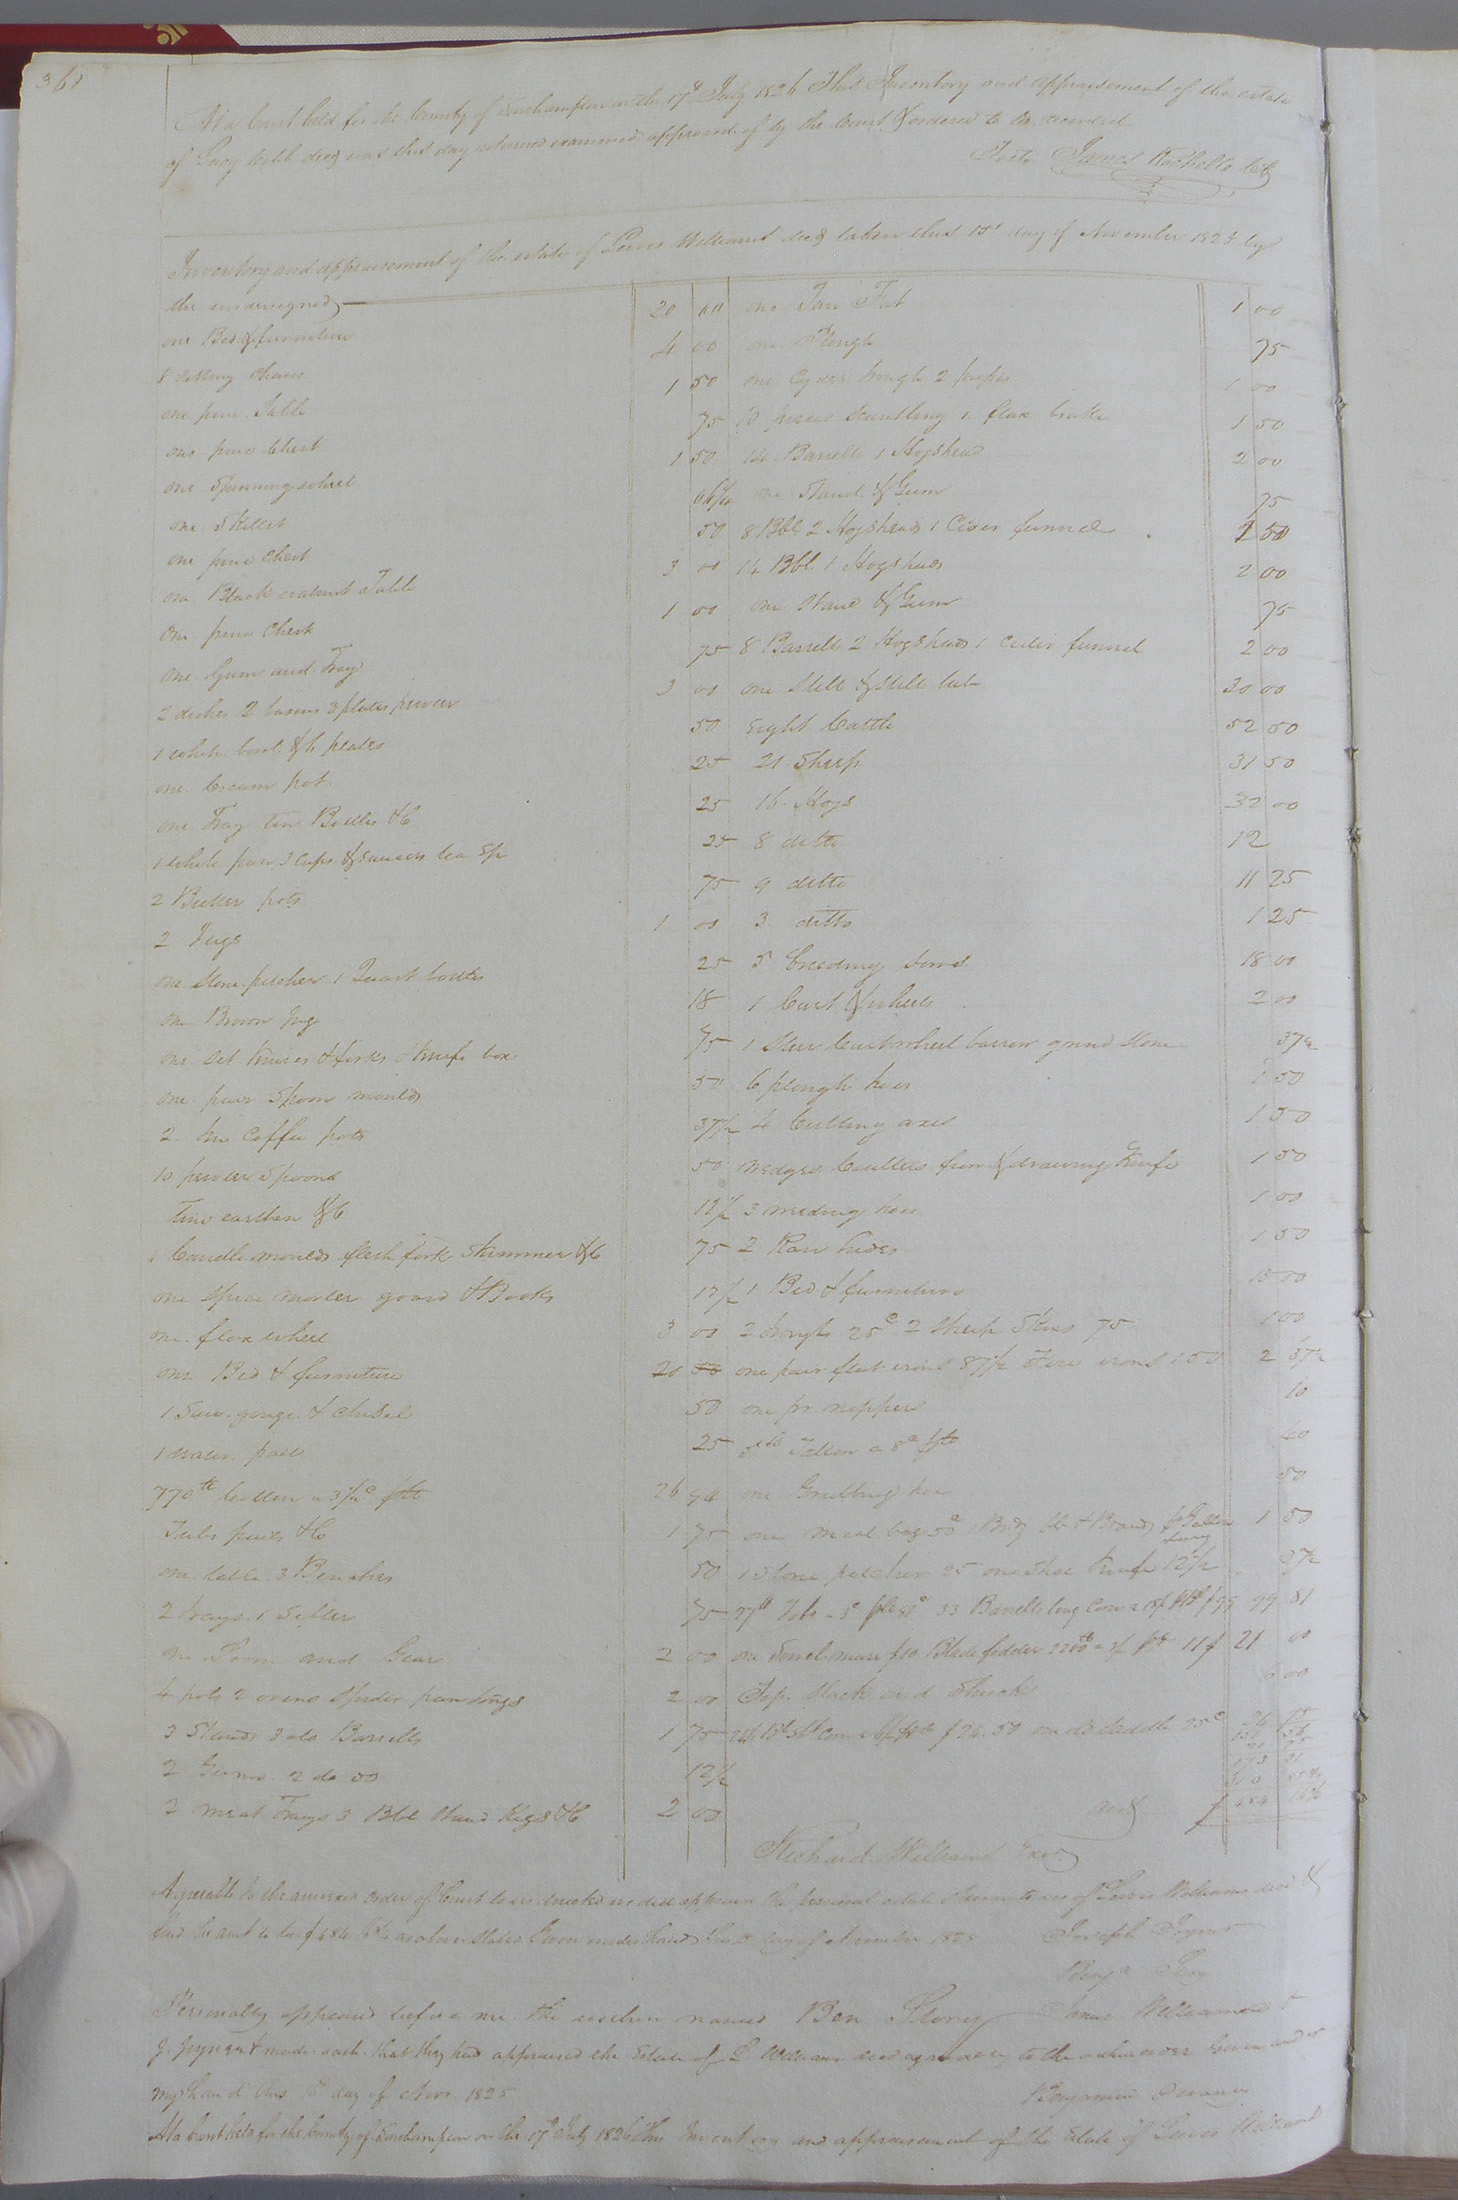 361
At a Court held for the County of Southampton on the 17th July 1826 This Inventory and appraisement of the estate
of Lucy Cobb decd was this day returned examined approved of by the Court & ordered to be recorded
Teste James Rochelle
Inventory and appraisement of the estate of Lewis Williams decd taken this 15th day of November 1825 by
the undersigned
one Bed & furniture 20 00
8 sitting Chairs 4 00
one pine Table 1 50
one pine Chest 75
one Spinning wheel 1 50
one Skillet
one pine Chest 50
one Black walnut Table 3 00
one pine Chest 1 00
one Gum and Tray 75
2 dishes 2 basons 3 plates pewter 3 00
1 white bowl & 6 plates 50
one Cream pot 25
one Tray tin Bottles &C 25
1 white pan 3 cups & saucers tea 25
2 Butter pots 75
2 Jugs 1 00
one Stone pitcher 1 Quart bottle 25
one Brown Jug 18
one set knives & forks & knife box 75
one pair Spoon moulds 50
2 tin Coffee pots 37½
10 pewter Spoons 50
Tin earthen &C 12½
Candle moulds flesh fork Skimmer &C 75
one Spice morter gourd & Books 17½
one flax wheel 3 00
one Bed & furniture 20
1 Saw gouge & chisel 50
1 water pail 25
770 lb Cotton a 3½c 26 94
Tubs pails &C 1 75
one table 3 Benches 50
2 trays 1 Sifter 75
one Loom and Gear 2 00
4 pots 2 ovens spider pan tongs 2 00
3 Stands 3 old Barrells 1 75
2 Gums 2 do 50 12½
2 meat Trays 3 Bbl Stand Kegs &C 2 00
one Tan Fat 1 00
one Plough 75
one Cyder trough 2 1 00
10 pieces Scantling 1 flax brake 1 50
14 Barrells 1 Hogshead 2 00
one Stand & Gum 75
8 Bbl 2 Hogsheads 1 Cider funnel 2 50
14 Bbl 1 Hogshead 2 00
one Stand & Gum 75
8 Barrells 2 Hogsheads 1 Cider funnel 2 00
one Still & Still tub 30 00
Eight Cattle 52 50
21 Sheep 31 50
16 Hogs 32 00
8 ditto 12
9 ditto 11 25
3 ditto 1 25
5 breeding Sows 18 00
1 Cart & wheels 2 00
1 Steer Cart wheel barrow grind Stone 37½
6 plough hoes 1 50
4 Cutting axes 1 50
Wedges Coulters & drawing Knife 1 50
3 weeding hoes 1 00
2 Raw hides 1 50
1 Bed & furniture 15 00
2 troughs 25c 2 Sheep Skins 75 1 00
one pair flat irons 87½ Fire irons 1 50 2 37½
one pr nippers 10
5 lb Tallow a 8c 40
one Grubbing hoe 50
one meal bag 50c 1 50
1 Stone pitcher 25 one Shoe Knife 12½ 37½
33 Barrells long Corn 99 81
one Sorrel mare $10 Blade fodder 21 00
Top Stack and Shucks 6 00
Richard Williams Exor
Agreeable to the annexed order of Court to us directed we did appraise the personal estate shewn to us of Lewis Williams decd &
find the amt to be as above stated Given under hands this day of November 1825
Joseph Joyner
Personally appeared before me the within named Ben Story James Williamson &
J. Joyner & made oath that they had appraised the Estate of L Williams decd agreeably to the within order Given under
my hand this day of Novr 1825
Benjamin Devany
At a Court held for the County of Southampton on the 17th July 1826 this Inventory and appraisement of the Estate of Lewis Williams